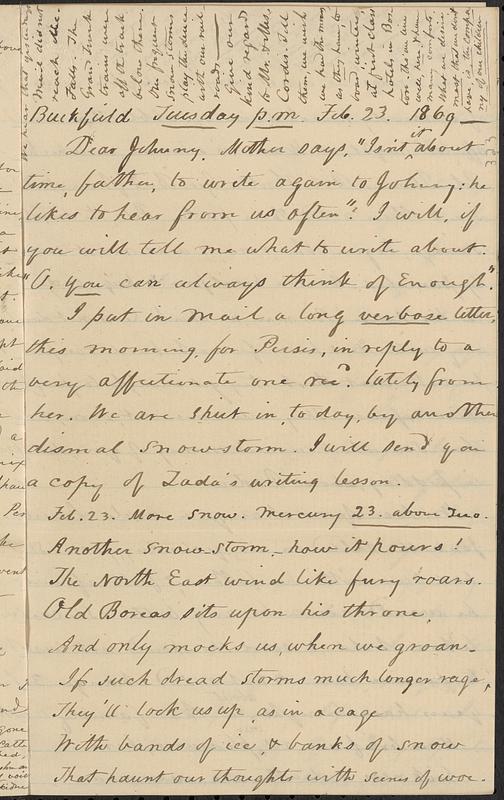 Buckfield Tuesday p.m. Feb. 23. 1869
Dear Johnny. Mother says, "Isn't it about
time, father, to write again to Johnny: he
likes to hear from us often"? I will, if
you will tell me what to write about.
"O, you can always think of Enough".
I put in mail a long verbose letter,
this morning, for Persis, in reply to a
very affectionate one rec'd. lately from
her. We are shut in, to day, by another
dismal snowstorm. I will send you
a copy of Zada's writing lesson.
Feb. 23. More snow. Mercury 23. above Zero.
Another snow storm,- how it pours!
The North East wind like fury roars.
Old Boreas sits upon his throne,
And only mocks us, when we groan-
If such dread storms much longer rage,
They'll lock us up, as in a cage
With bands of ice, & banks of snow
That haunt our thoughts with scenes of woe.
mail did not
reach the
Falls. The
Grand Trunk
trains were
off the track
below there.
The frequent
snow storms
play the deuce
with our rail
roads—
Give our
kind regards
to Mr. & Mrs.
Cordis. Tell
them we wish
we had the means
as they have, to
board winters,
at first class
hotels, in Bos
ton. There are
many comforts.
What we desire
most that we don't
have is the compa
ny of our children